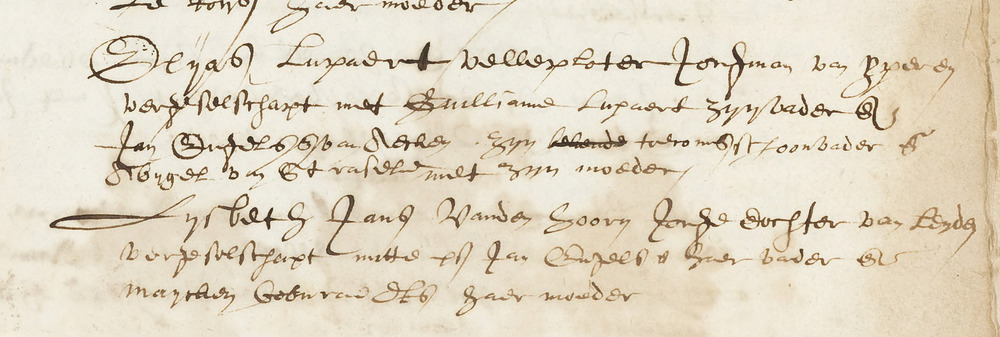 haer moeder
Elyas Lupaert velleploter Jonghman van Yperen
vergeselschapt met Guilliame Lupaert zyn vader &
Jan Engels van Aecken zyn bekende toecomsschoonvader &
Abygel van Straseele met zyn moeder
Lysbeth Jans Vanden hoorn Jonge dochter van Leyden
vergeselschapt mitte ps Jan Engels haer vader &
Maycken Coenraedts haer moeder